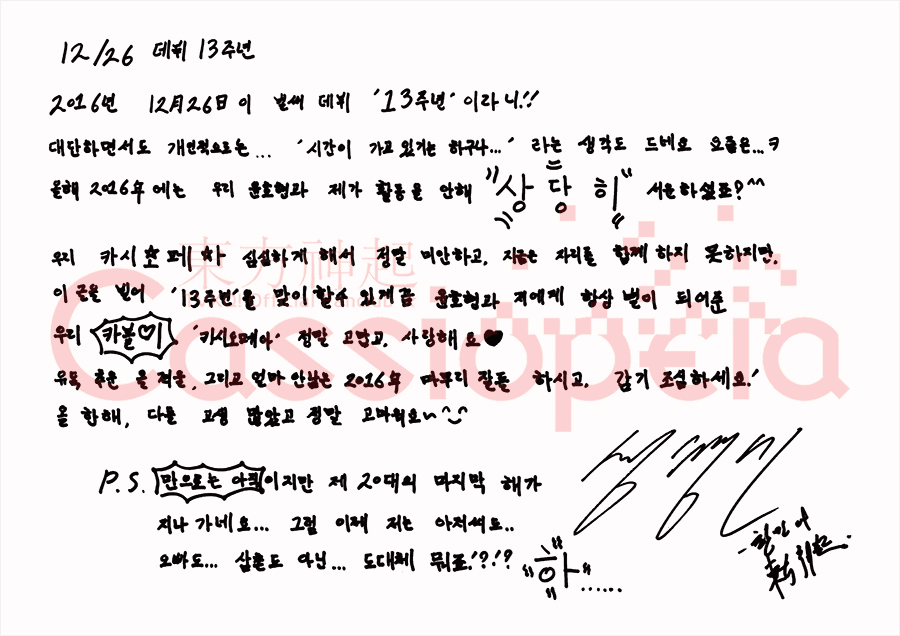 12/26 데뷔 13주년
2016년 12月26日이 벌써 데뷔 '13주년' 이라니!!
대단하면서도 개인적으로는... '시간이 가고 있기는 하구나...' 라는 생각도 드네요 오늘은...ㅋ
올해 2016年에는 우리 윤호형과 제가 활동을 안해 "상당히" 서운하셨죠?^^
우리 카시오페아 심심하게 해서 정말 미안하고, 지금은 자리를 함께 하지 못하지만,
이 글을 빌어 '13주년'을 맞이할수 있게끔 윤호형과 저에게 항상 별이 되어준
우리 카블♡이 '카시오페아' 정말 고맙고, 사랑해요♥
유독 추운 올 겨울, 그리고 얼마 안남은 2016年 마무리 잘들 하시고, 감기 조심하세요!
올 한해, 다들 고생 많았고 정말 고마워요~^_^
P.S. 만으로는 아직이지만 제 20대의 마지막 해가
지나가네요... 그럼 이제 저는 아저씨도..
오빠도... 삼촌도 아닌... 도대체 뭐죠!?!? "하"......
최강창민
東方神起
Cassiopeia